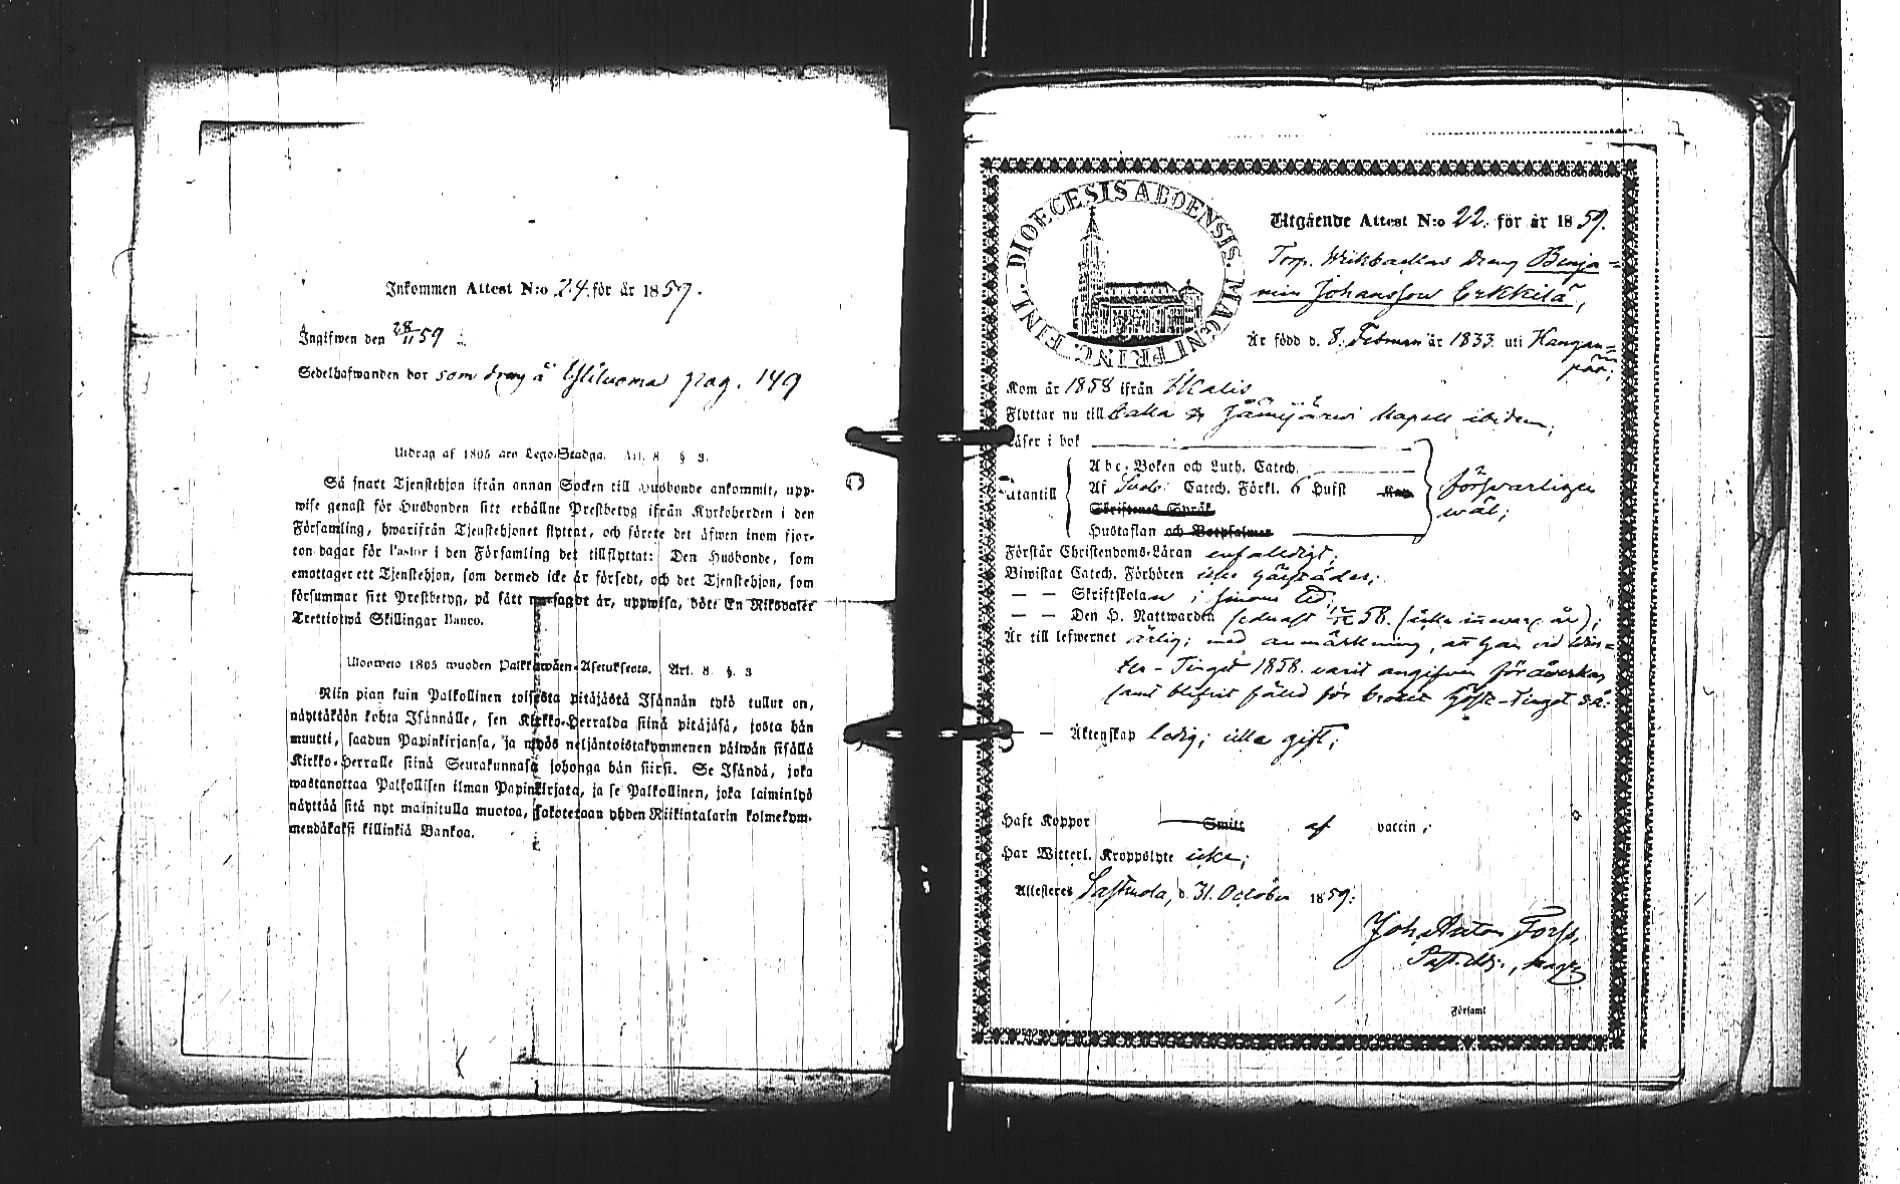 Inkommen Attest N:o 24. för år 1859.
Ingifwen den 28/11 59
Sedelhafwanden bor som dräng å Yliluoma pag. 149
Utdrag af 1805 års Lego-Stadga. Art. 8 § 3.
Så snart Tjenstehjon ifrån annan Socken till Husbonde ankommit, upp-
wise genast för Husbonden sitt erhållne Prestbetyg ifrån Kyrkoherden i den
Församling, hwarifrån Tjenstehjonet flyttat, och förete det äfwen inom fjor-
ton dagar för Pastor i den Församling det tillflyttat: Den Husbonde, som
emottager ett Tjenstehjon, som dermed icke är försedt, och det Tjenstehjon, som
försummar sitt Prestbetyg, på sätt nu sagdt är, uppwisa, böte En Riksdaler
Trettiotwå Skillingar Banco.
Ulosweto 1805 wuoden Palkkawäen-Asetuksesta. Art. 8. §. 3
Niin pian kuin Palkollinen toisesta pitäjästä Isännän tykö tullut on,
näyttäköön kohta Isännälle, sen Kirkko-Herralda siinä pitäjäsä, josta hän
muutti, saadun Papinkirjansa, ja myös neljäntoistakymmenen päiwän sisällä
Kirkko-Herralle siinä Seurakunnasa johonga hän siirsi. Se Isändä, joka
wastanottaa Palkollisen ilman Papinkirjata, ja se Palkollinen, joka laiminlyö
näyttää sitä nyt mainitulla muotoa, sakotetaan yhden Riikintalarin kolmekym-
mendäkaksi killinkiä Bankoa.
DIOECESIS ABOENSIS. MAGNI PRINC. FINL.
Utgående Attest N:o 22. för år 1859.
Torp. Dräng Benja=
min Johansson Erkkilä,
Är född d. 8. Februari år 1833. uti Kangas=
Kom år 1858 ifrån Ikalis
Flyttar nu till Jämijärvi Kapell ibidem;
Läser i bok
Abc-Boken och Luth. Catech.
Utantill Af Catech. Förkl. 6 Hufst försvarligen
Skriftenes Språk wäl;
Hustaflan och Botpsalmer
Förstår Christendoms-Läran enfaldigt;
Biwistat Catech. Förhören
— — Skriftskolan i
— — Den H. Nattwarden sednast 58. (icke innevar. år);
Är till lefwernet ärlig; med anmärkning, att han vid Win=
ter-Tinget 1858. varit angifven för åverkan
samt blifvit fälld för brottet Höste-Tinget
— — Äktenskap ledig; icke gift;
Haft Koppor Smitt af vaccin;
Har Witterl. Kroppslyte icke;
Attesteres Lassmola, d. 31. October 1859.
Joh. Anton
Församl